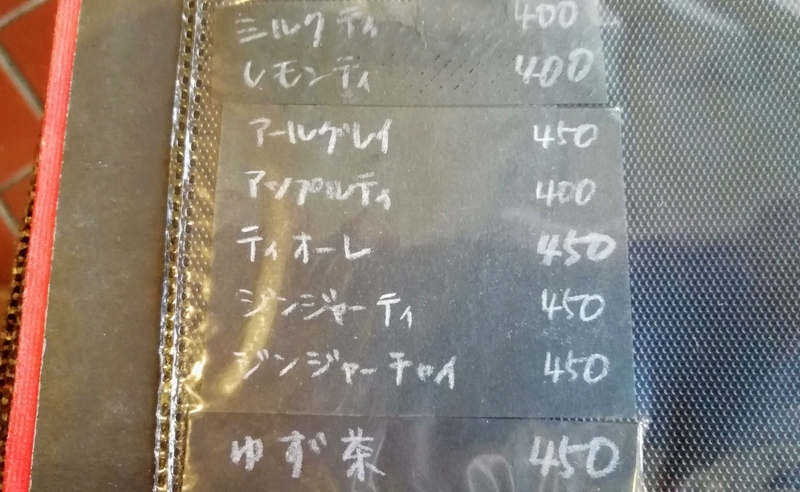 ミルクティ 400
レモンティ 400
アールグレイ 450
アップルティ 400
ティオーレ 450
ジンジャーティ 450
ジンジャーチャイ 450
ゆず茶 450